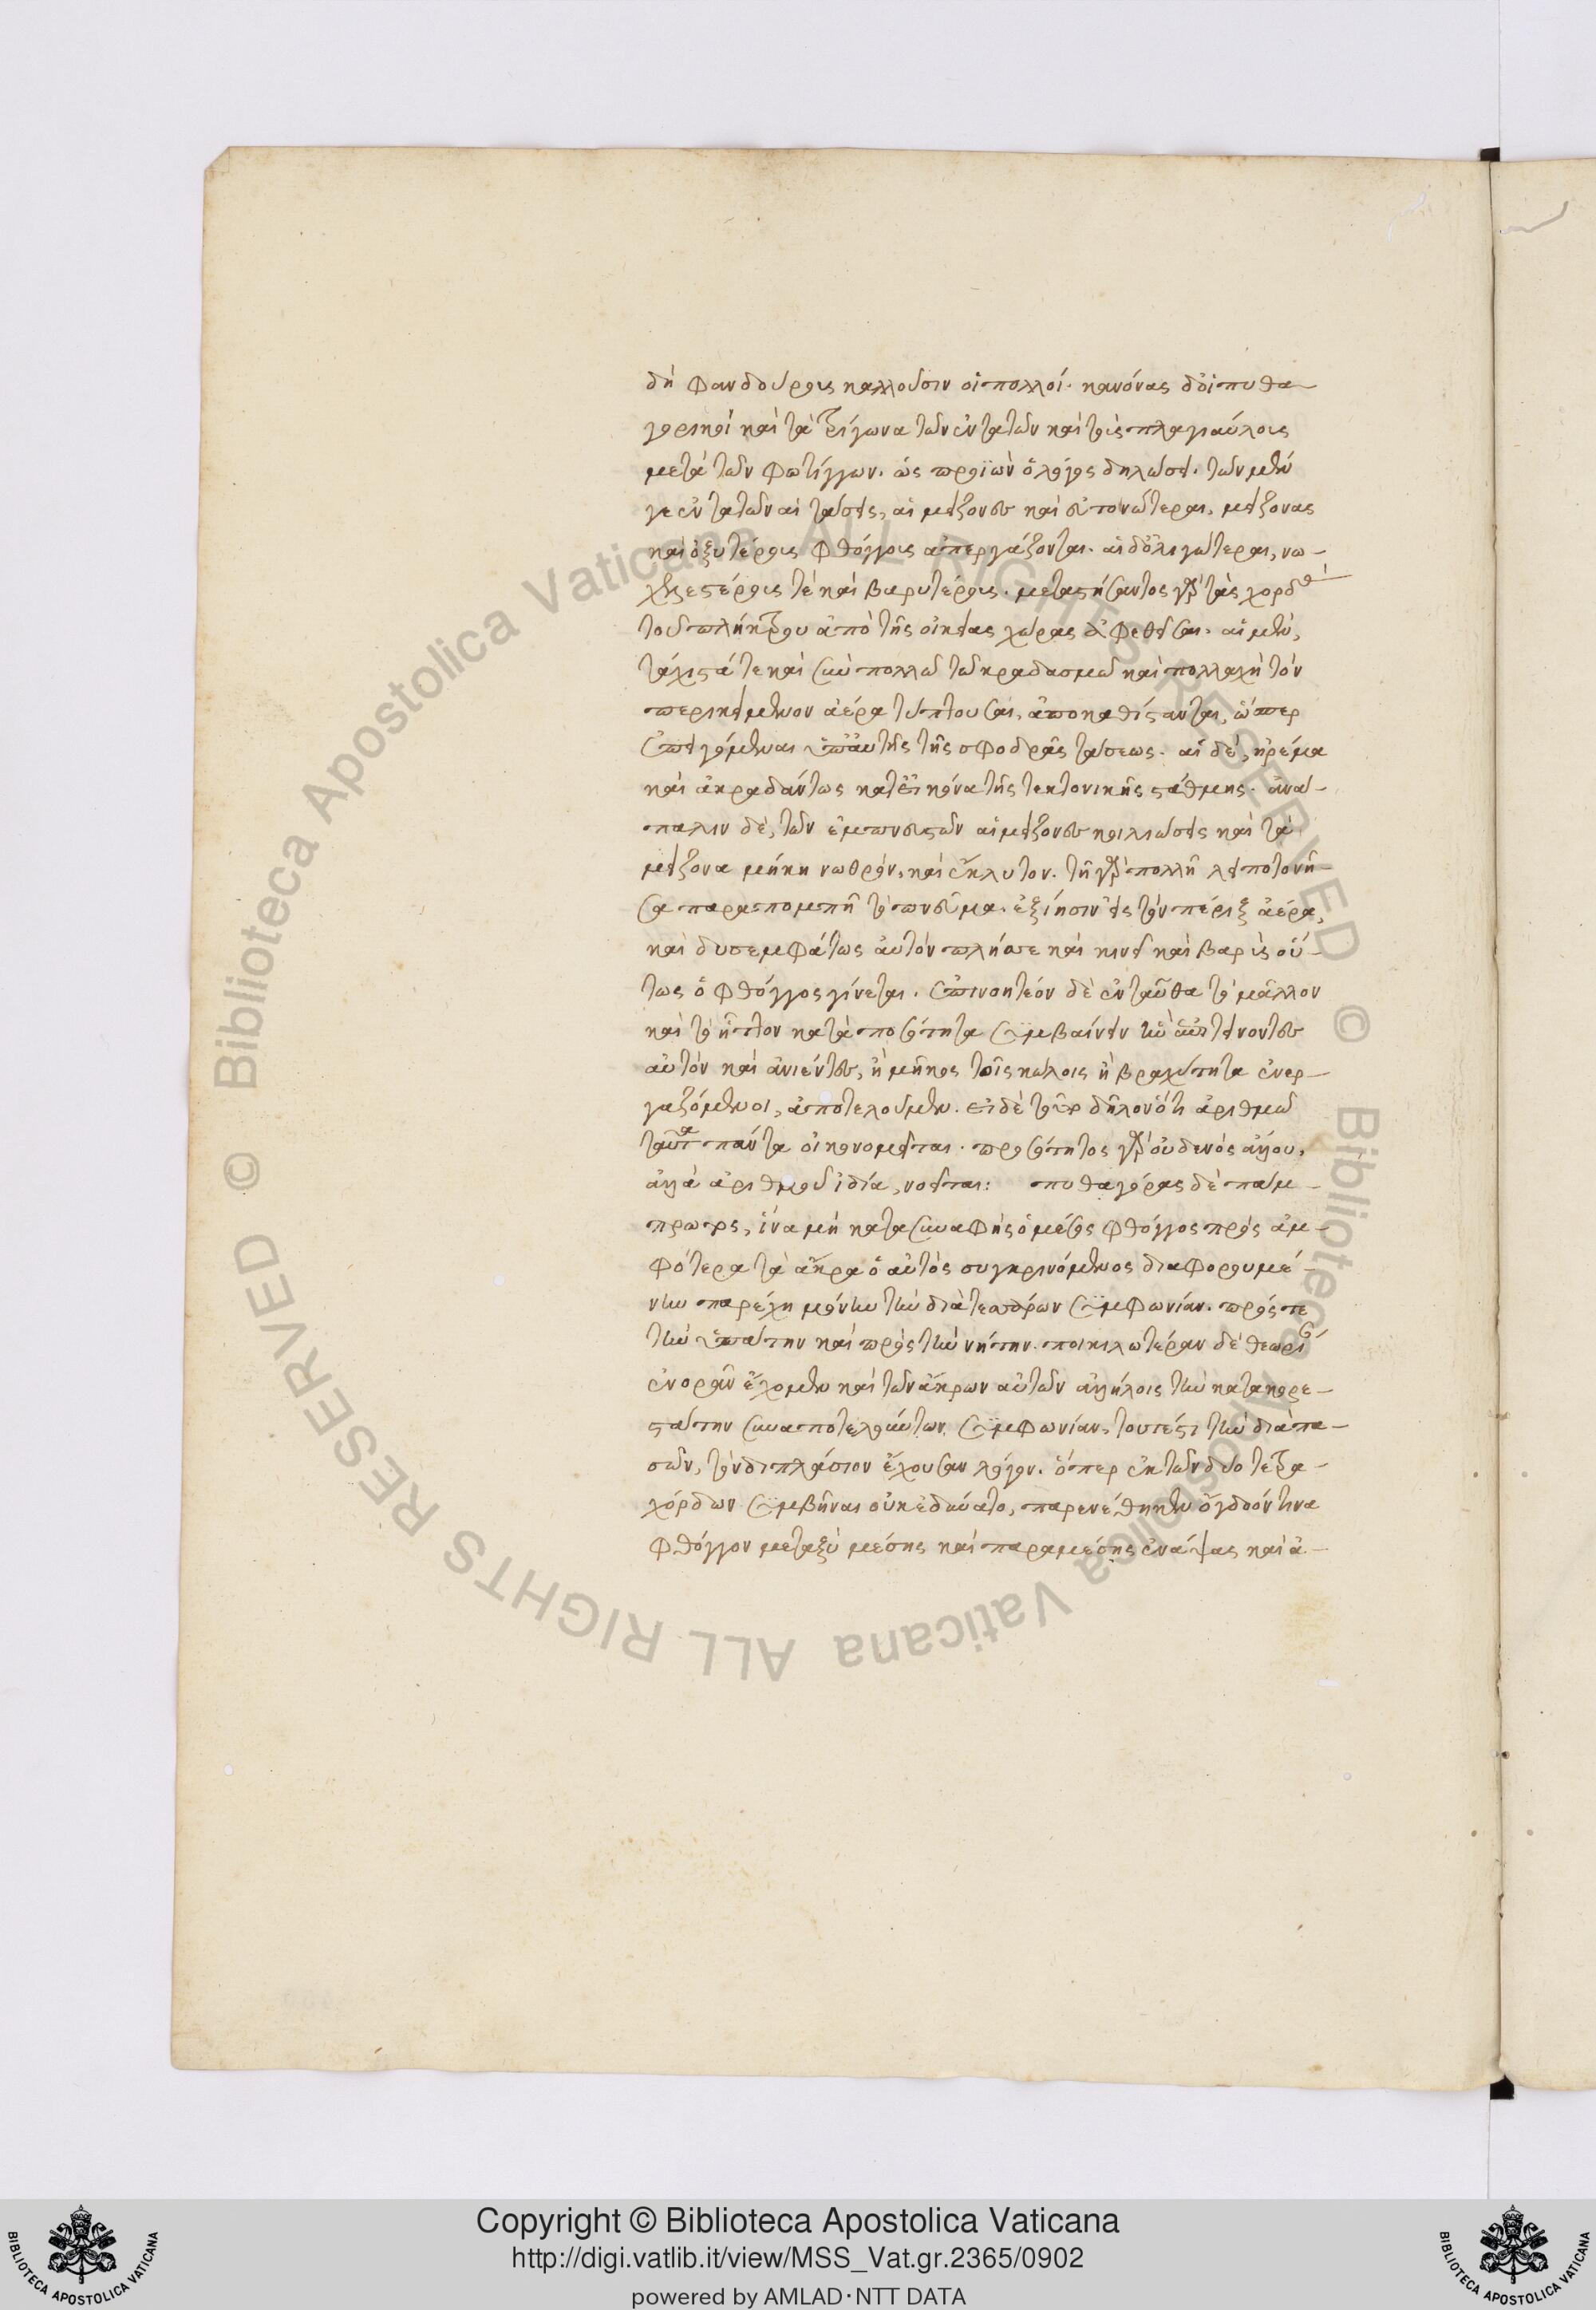 δὴ φανδούρους καλλοῦσιν οἱ πολλοί. κανόνας δ' οἱ πυθα-
γορικοὶ καὶ τὰ τρίγωνα τῶν ἐντατῶν καὶ τοῖς πλαγιαύλοις
μετὰ τῶν φωτίγγων. ὡς προϊὼν ὁ λόγος δηλώσει. τῶν μὲν
γε ἐντατῶν αἱ τάσεις, αἱ μείζονες καὶ εὐτονώτεραι, μείζονας
καὶ ὀξυτέρους φθόγγους ἀπεργάζονται. αἱ δ' ὀλιγώτεραι, νω-
χελεστέρους τὲ καὶ βαρυτέρους. μεταστήσαντος γὰρ τὰς χορδὰς
τοῦ πλήκτρου ἀπὸ τῆς οἰκείας χώρας ἀφεθεῖσαι. αἱ μὲν,
τάχιστά τε καὶ σὺν πολλῶ τῶ κραδασμῶ καὶ πολλαχῆ τὸν
περικείμενον ἀέρα τύπτουσαι, ἀποκαθίστανται, ὥσπερ
ἐπειγόμεναι ὑπ' αὐτῆς τῆς σφοδρᾶς τάσεως. αἱ δὲ, ἠρέμα
καὶ ἀκραδάντως κατ' εἰκόνα τῆς τεκτονικῆς στάθμης. ἀνά-
παλιν δὲ, τῶν ἐμπνευστῶν αἱ μείζονες κοιλιώσεις καὶ τὰ
μείζονα μήκη νωθρὸν, καὶ ἔκλυτον. τῇ γὰρ πολλῆ λειποτονή-
σα παραπομπῆ τὸ πνεῦμα. ἐξίησιν εἰς τὸν πέριξ ἀέρα,
καὶ δυσεμφάτως αὐτὸν πλήσσε καὶ κινεῖ καὶ βαρὺς οὕ-
τως ὁ φθόγγος γίνεται. ἐπινοητέον δὲ ἐνταῦθα τὸ μᾶλλον
καὶ τὸ ἧττον κατὰ ποσότητα συμβαίνειν ἣν ἐπιτείνοντες
αὐτὸν καὶ ἀνιέντες, ἢ μῆκος τοῖς κώλοις ἢ βραχύτητα ἐνερ-
γαζόμενοι, ἀποτελοῦμεν. εἰ δὲ τοῦτο δῆλον ὅτι ἀριθμῶ
ταῦτα πάντα οἰκονομεῖται. ποσότητος γὰρ οὐδενὸς ἄλλου,
ἀλλὰ ἀριθμοῦ ἰδία, νοεῖται: πυθαγόρας δὲ πάμ-
πρωτος, ἵνα μὴ κατὰ συναφὴν ὁ μέσος φθόγγος πρὸς ἀμ-
φότερα τὰ ἄκρα ὁ αὐτὸς συγκρινόμενος διαφορουμέ-
νην παρέχη μόνην τὴν διὰ τεσσάρων συμφωνίαν. πρός τε
τὴν ὑπάτην καὶ πρὸς τὴν νήτην. ποικιλωτέραν δὲ θεωρίαν
ἐνορᾶν ἔχομεν καὶ τῶν ἄκρων αὐτῶν ἀλλήλοις τὴν κατακορε-
στάτην συναποτελούντων συμφωνίαν, τουτέστι τὴν διὰ πα-
σῶν, τὸν διπλάσιον ἔχουσαν λόγον. ὅπερ ἐκ τῶν δύο τετρα-
χόρδων συμβῆναι οὐκ ἐδύνατο, παρενέθηκεν ὄγδοόν τινα
φθόγγον μεταξὺ μέσης καὶ παραμέσης ἐνάψας καὶ ἀ-
Copyright © Biblioteca Apostolica Vaticana
http://digi.vatlib.it/view/MSS_Vat.gr.2365/0902
powered by AMLAD·NTT DATA